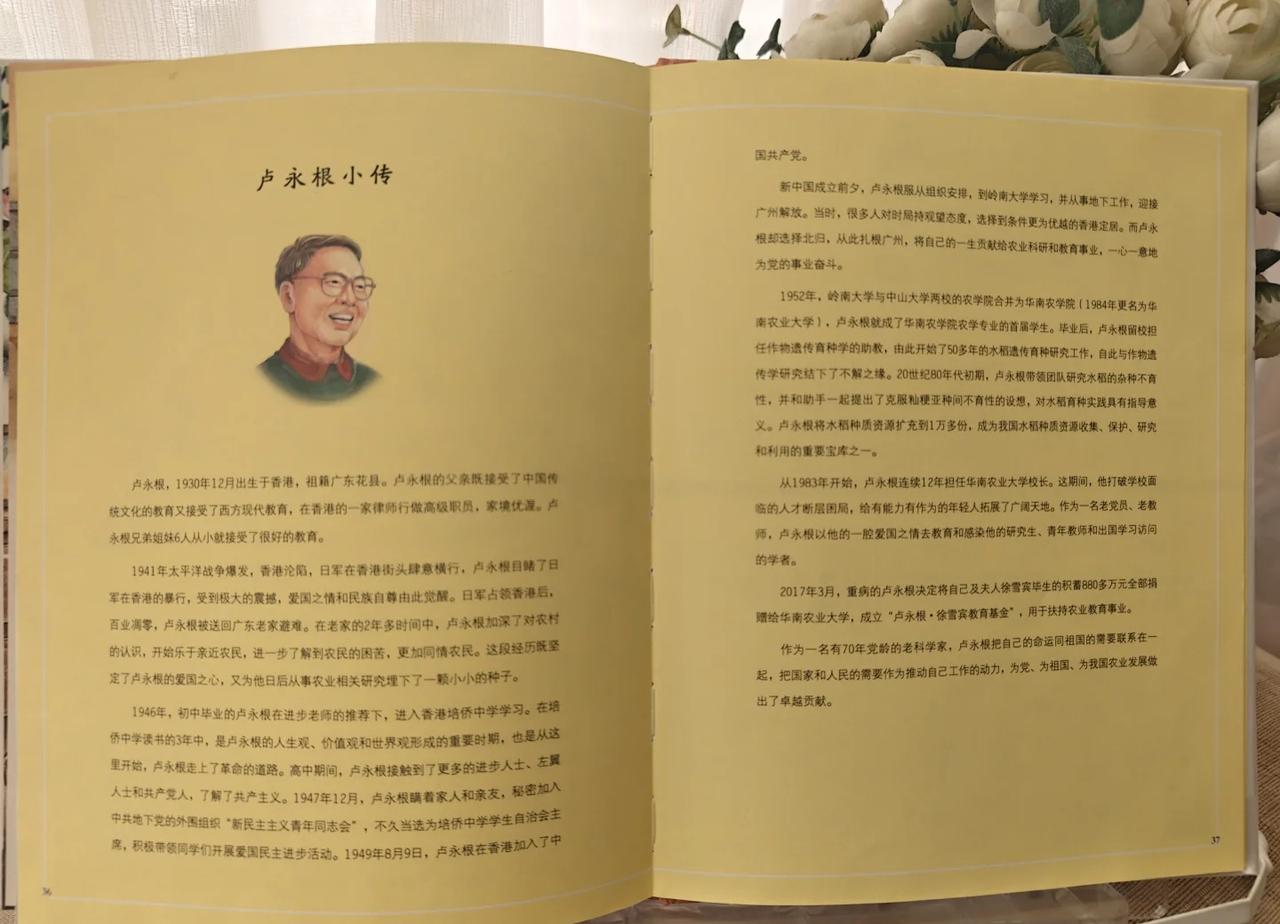 卢永根小传
卢永根，1930年12月出生于香港，祖籍广东花县。卢永根的父亲既接受了中国传
统文化的教育又接受了西方现代教育，在香港的一家律师行做高级职员，家境优渥。卢
永根兄弟姐妹6人从小就接受了很好的教育。
1941年太平洋战争爆发，香港沦陷，日军在香港街头肆意横行，卢永根目睹了日
军在香港的暴行，受到极大的震撼，爱国之情和民族自尊由此觉醒。日军占领香港后，
百业凋零，卢永根被送回广东老家避难。在老家的2年多时间中，卢永根加深了对农村
的认识，开始乐于亲近农民，进一步了解到农民的困苦，更加同情农民。这段经历既坚
定了卢永根的爱国之心，又为他日后从事农业相关研究埋下了一颗小小的种子。
1946年，初中毕业的卢永根在进步老师的推荐下，进入香港培侨中学学习。在培
侨中学读书的3年中，是卢永根的人生观、价值观和世界观形成的重要时期，也是从这
里开始，卢永根走上了革命的道路。高中期间，卢永根接触到了更多的进步人士、左翼
人士和共产党人，了解了共产主义。1947年12月，卢永根瞒着家人和亲友，秘密加入
中共地下党的外围组织“新民主主义青年同志会”，不久当选为培侨中学学生自治会主
席，积极带领同学们开展爱国民主进步活动。1949年8月9日，卢永根在香港加入了中
36
国共产党。
新中国成立前夕，卢永根服从组织安排，到岭南大学学习，并从事地下工作，迎接
广州解放。当时，很多人对时局持观望态度，选择到条件更为优越的香港定居。而卢永
根却选择北归，从此扎根广州，将自己的一生贡献给农业科研和教育事业，一心一意地
为党的事业奋斗。
1952年，岭南大学与中山大学两校的农学院合并为华南农学院（1984年更名为华
南农业大学），卢永根就成了华南农学院农学专业的首届学生。毕业后，卢永根留校担
任作物遗传育种学的助教，由此开始了50多年的水稻遗传育种研究工作，自此与作物遗
传学研究结下了不解之缘。20世纪80年代初期，卢永根带领团队研究水稻的杂种不育
性，并和助手一起提出了克服籼粳亚种间不育性的设想，对水稻育种实践具有指导意
义。卢永根将水稻种质资源扩充到1万多份，成为我国水稻种质资源收集、保护、研究
和利用的重要宝库之一。
从1983年开始，卢永根连续12年担任华南农业大学校长。这期间，他打破学校面
临的人才断层困局，给有能力有作为的年轻人拓展了广阔天地。作为一名老党员、老教
师，卢永根以他的一腔爱国之情去教育和感染他的研究生、青年教师和出国学习访问
的学者。
2017年3月，重病的卢永根决定将自己及夫人徐雪宾毕生的积蓄880多万元全部捐
赠给华南农业大学，成立“卢永根·徐雪宾教育基金”，用于扶持农业教育事业。
作为一名有70年党龄的老科学家，卢永根把自己的命运同祖国的需要联系在一
起，把国家和人民的需要作为推动自己工作的动力，为党、为祖国、为我国农业发展做
出了卓越贡献。
37